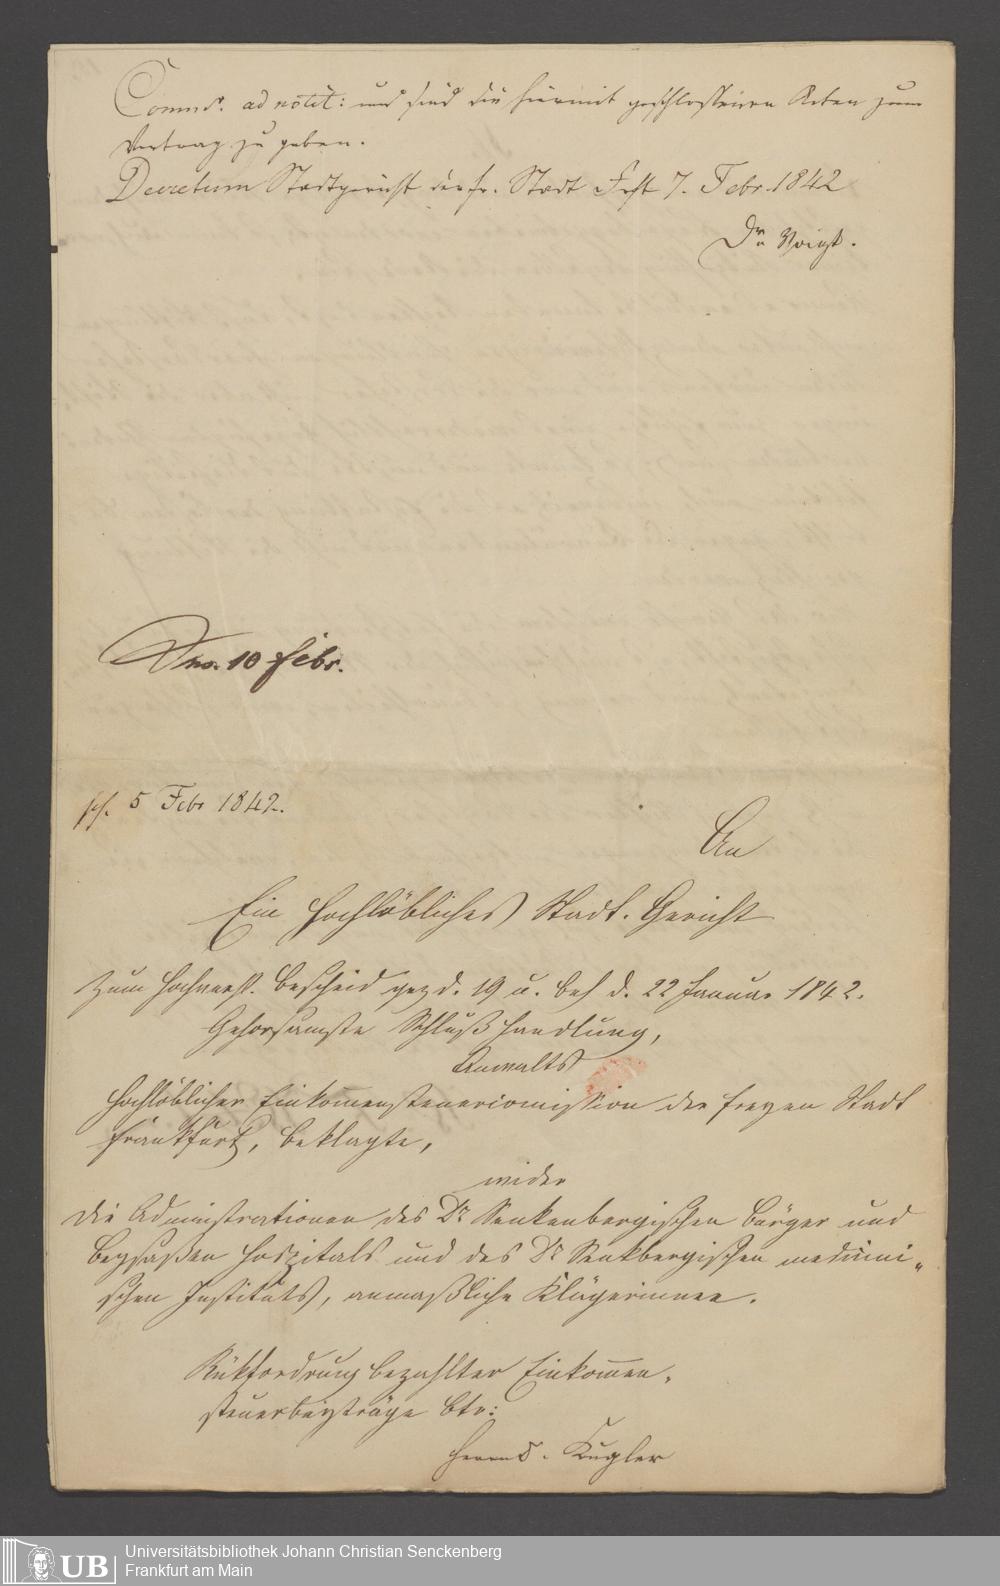 Commr. ad notit: und sind die hiermit geschlossenen Acten zum
Vortrag zu geben.
Decretum Stadtgericht der fr. Stadt Frft 7. Febr. 1842
Dr. Voigt.
10 Febr.
5 Febr 1842.
An
Ein Hochlöbliches Stadt-Gericht
Zum hochverehrl. Bescheid gez d. 19 u. beh d. 22 Januar 1842.
Gehorsamste Schlußhandlung,
Anwalts
Hochlöblicher Einkommensteuercommission der freyen Stadt
Frankfurt, Beklagte,
wider
die Administrationen des Dr. Senkenbergischen Bürger und
Beysaßen Hospitals und des Dr. Senkbergischen medicini„
schen Instituts, anmaßliche Klägerinnen.
Rükfordrung bezahlter Einkommen„
steuerbeyträge btr:
Kugler
Universitätsbibliothek Johann Christian Senckenberg
Frankfurt am Main
UB